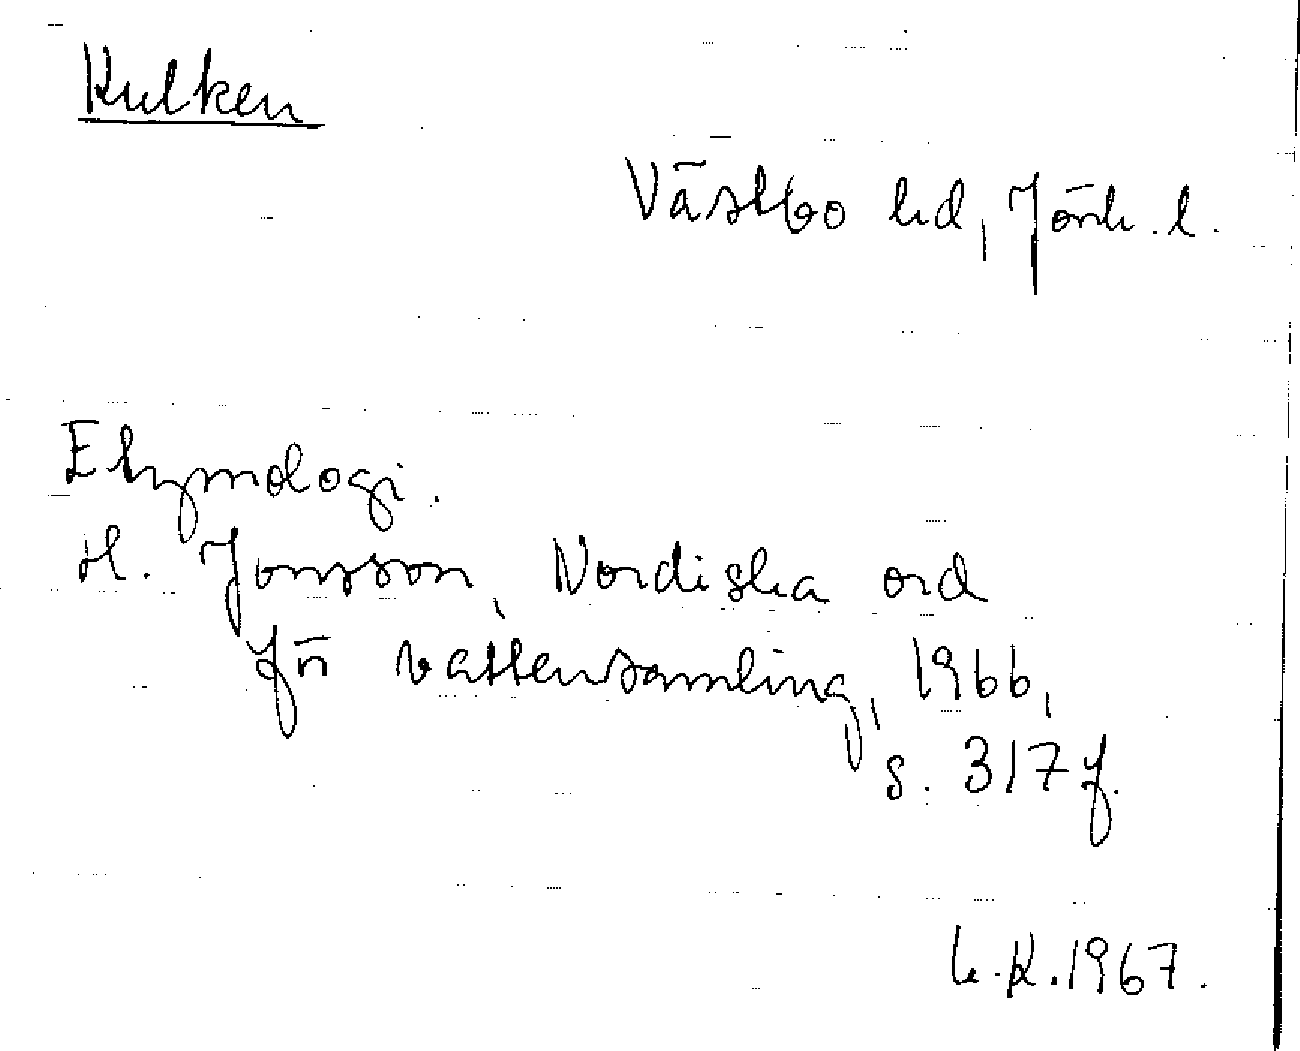 Kulken
Västbo hd, Jönk. l.
Etymologi.
H. Jonsson, Nordiska ord
för vattensamling, 1966,
s. 317 f.
L.K. 1967.